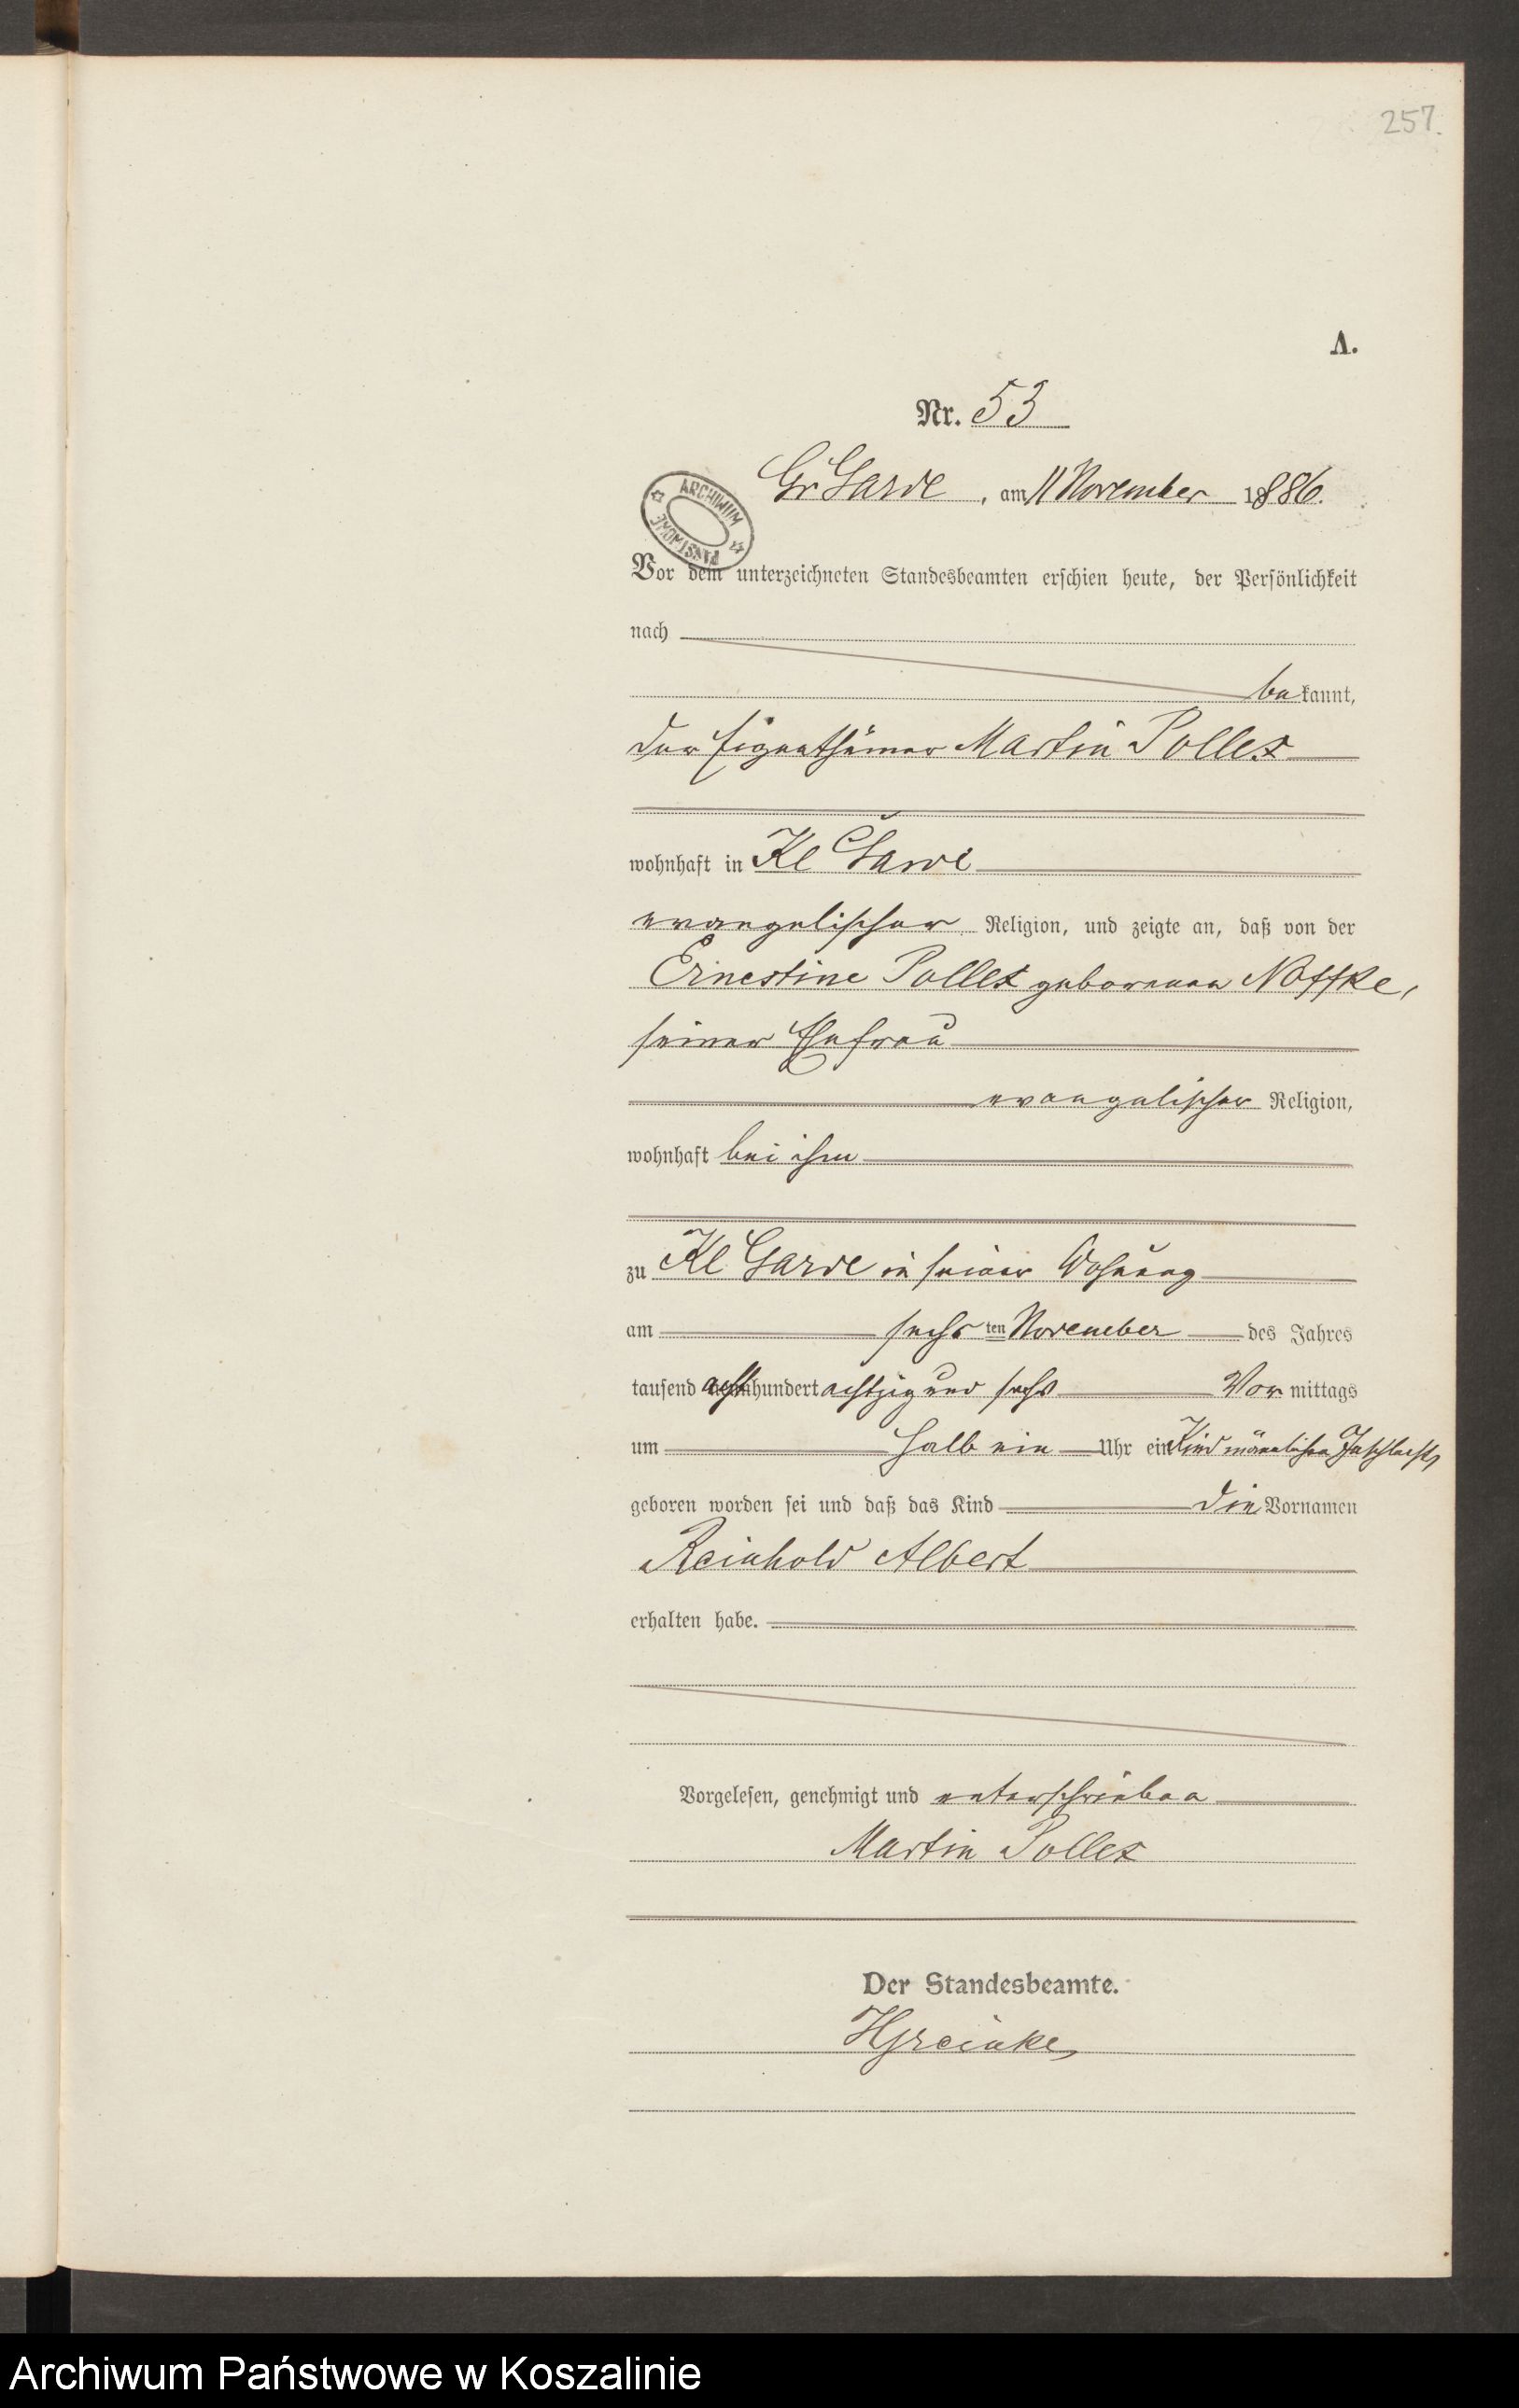 257.
A.
Nr. 53
Gr Garde, am 11 November 1886.
ARCHIWUM PAŃSTWOWE
Vor dem unterzeichneten Standesbeamten erschien heute, der Persönlichkeit
nach
bekannt,
der Eigenthümer Martin Pollex
wohnhaft in Kl Garde
evangelischer Religion, und zeigte an, daß von der
Ernestine Pollex geborenen Noffke,
seiner Ehefrau
evangelischer Religion,
wohnhaft bei ihm
zu Kl Garde in seiner Wohnung
am sechsten November des Jahres
tausend achthundert achtzig und sechs Vormittags
um halb ein Uhr ein Kind männlichen Geschlechts
geboren worden sei und daß das Kind die Vornamen
Reinhold Albert
erhalten habe.
Vorgelesen, genehmigt und unterschrieben
Martin Pollex
Der Standesbeamte.
Archiwum Państwowe w Koszalinie